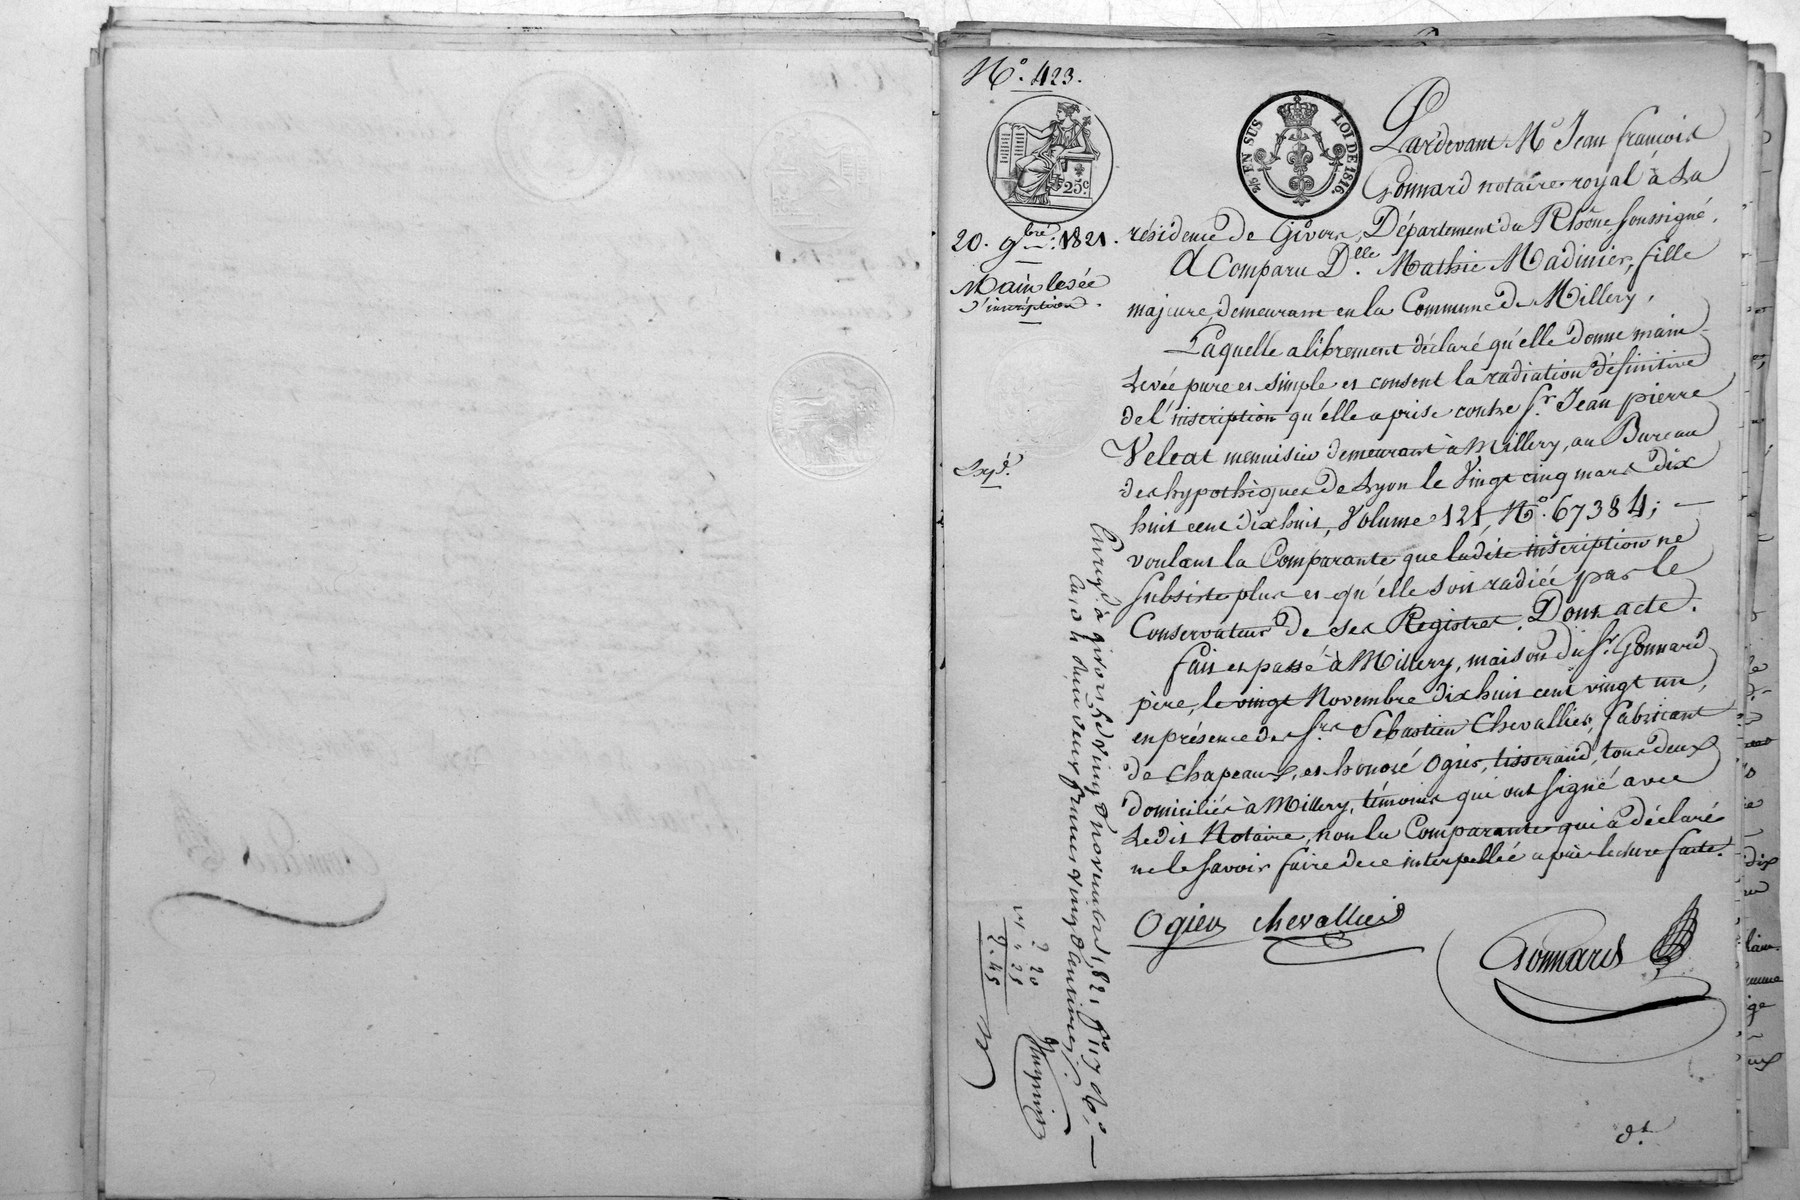 N.º 423.
25 c
EN SUS
LOI DE 1816.
20. 9.bre 1821.
Main levée
d'inscription.
Exp.é
Pardevant M.e Jean françois
Gonnard notaire royal à la
résidence de Givors, Département du Rhône soussigné.
A Comparu D.lle Mathie Madinier, fille
majeure, demeurant en la Commune de Millery,
Laquelle a librement déclaré qu'elle donne main-
levée pure et simple et consent la radiation définitive
de l'inscription qu'elle a prise contre S.r Jean pierre
Veleat menuisier demeurant à Millery, au Bureau
des hypothèques de Lyon le Vingt cinq mars dix
huit cent dix huit, Volume 121, N.º 67384; —
voulant la Comparante que ladite inscription ne
subsiste plus et qu'elle soit radiée par le
Conservateur de ses Registres. Dont acte.
fait et passé à Millery, maison du S.r Gonnard
père, le vingt Novembre dix huit cent vingt un,
en présence des S.rs Sébastien Chevallier, fabricant
de chapeaux, et honoré Ogier, tisserand, tous deux
domiciliés à Millery, témoins qui ont signé avec
Ledit Notaire, non la Comparante qui a déclaré
ne le savoir faire de ce interpellée après lecture faite.
Ogier chevallier
Gonnard
Enreg.é à givors le vingt d novembre 1821 f.º 119 N.º —
deux francs vingt centimes
2 20
25
2.45